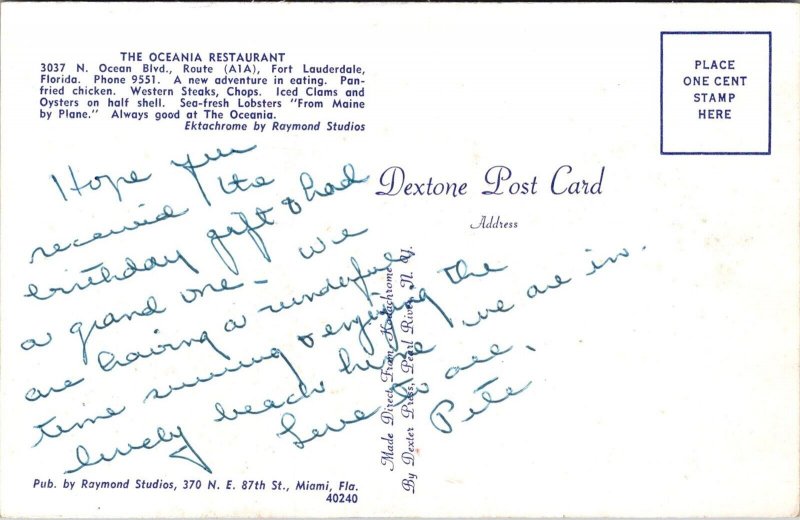 THE OCEANIA RESTAURANT
3037 N. Ocean Blvd., Route (A1A), Fort Lauderdale,
Florida. Phone 9551. A new adventure in eating. Pan-
fried chicken. Western Steaks, Chops. Iced Clams and
Oysters on half shell. Sea-fresh Lobsters "From Maine
by Plane." Always good at The Oceania.
Ektachrome by Raymond Studios
PLACE
ONE CENT
STAMP
HERE
Dextone Post Card
Address
Hope you
received the
birthday gift & had
a grand one - We
are having a wonderful
time swimming & enjoying the
lovely beach here we are in.
Love to all,
Pete
Made Direct From Kodachrome
By Dexter Press, Pearl River, N. Y.
Pub. by Raymond Studios, 370 N. E. 87th St., Miami, Fla.
40240